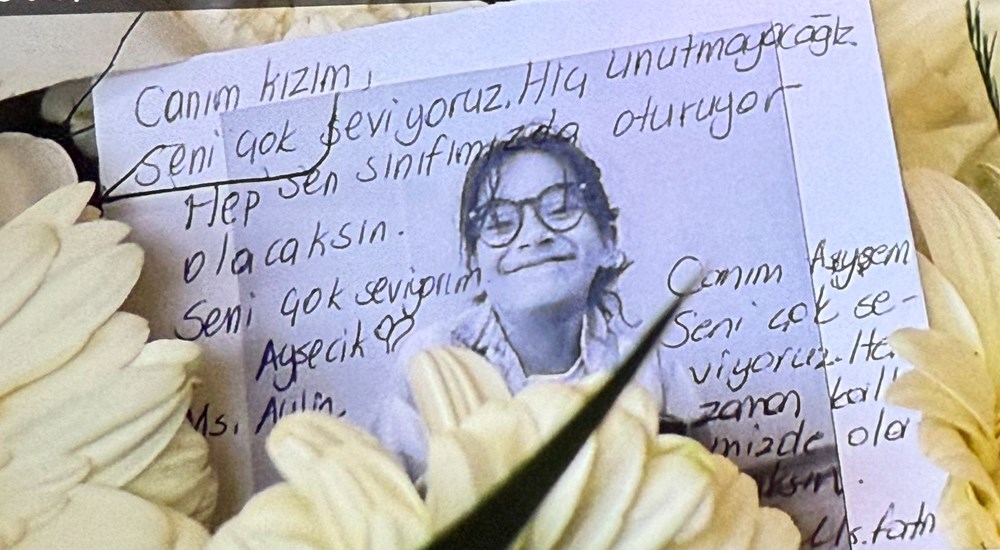 Canım kızım,
Seni çok seviyoruz. Hiç unutmayacağız
Hep sen sınıfımızda oturuyor
olacaksın.
Seni çok seviyorum
Ayşecik
Ms.
Canım Ayşem
Seni çok se-
viyoruz.
zaman
mizde ola